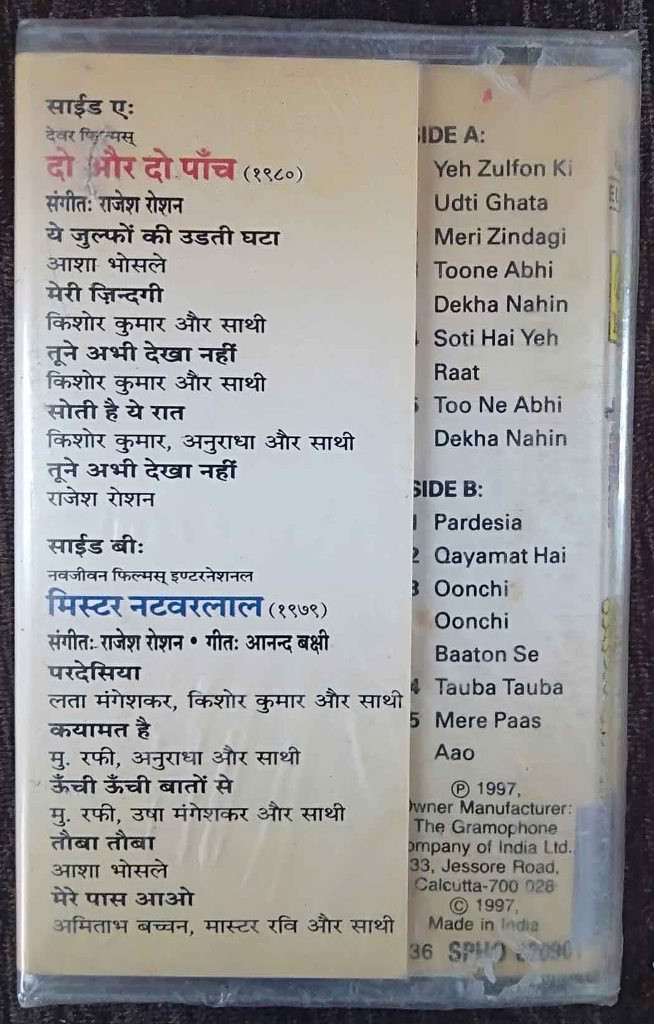 साईड ए:
देवर फिल्मस्
दो और दो पाँच (१९८०)
संगीत: राजेश रोशन
ये जुल्फों की उडती घटा
आशा भोसले
मेरी ज़िन्दगी
किशोर कुमार और साथी
तूने अभी देखा नहीं
किशोर कुमार और साथी
सोती है ये रात
किशोर कुमार, अनुराधा और साथी
तूने अभी देखा नहीं
राजेश रोशन
साईड बी:
नवजीवन फिल्मस् इण्टरनेशनल
मिस्टर नटवरलाल (१९७९)
संगीत: राजेश रोशन • गीत: आनन्द बक्षी
परदेसिया
लता मंगेशकर, किशोर कुमार और साथी
कयामत है
मु. रफी, अनुराधा और साथी
ऊँची ऊँची बातों से
मु. रफी, उषा मंगेशकर और साथी
तौबा तौबा
आशा भोसले
मेरे पास आओ
अमिताभ बच्चन, मास्टर रवि और साथी
SIDE A:
Yeh Zulfon Ki
Udti Ghata
Meri Zindagi
Toone Abhi
Dekha Nahin
Soti Hai Yeh
Raat
5 Too Ne Abhi
Dekha Nahin
SIDE B:
1 Pardesia
2 Qayamat Hai
3 Oonchi
Oonchi
Baaton Se
4 Tauba Tauba
5 Mere Paas
Aao
℗ 1997,
Owner Manufacturer:
The Gramophone
ompany of India Ltd.,
33, Jessore Road,
Calcutta-700 028
© 1997,
Made in India
36 SPHO